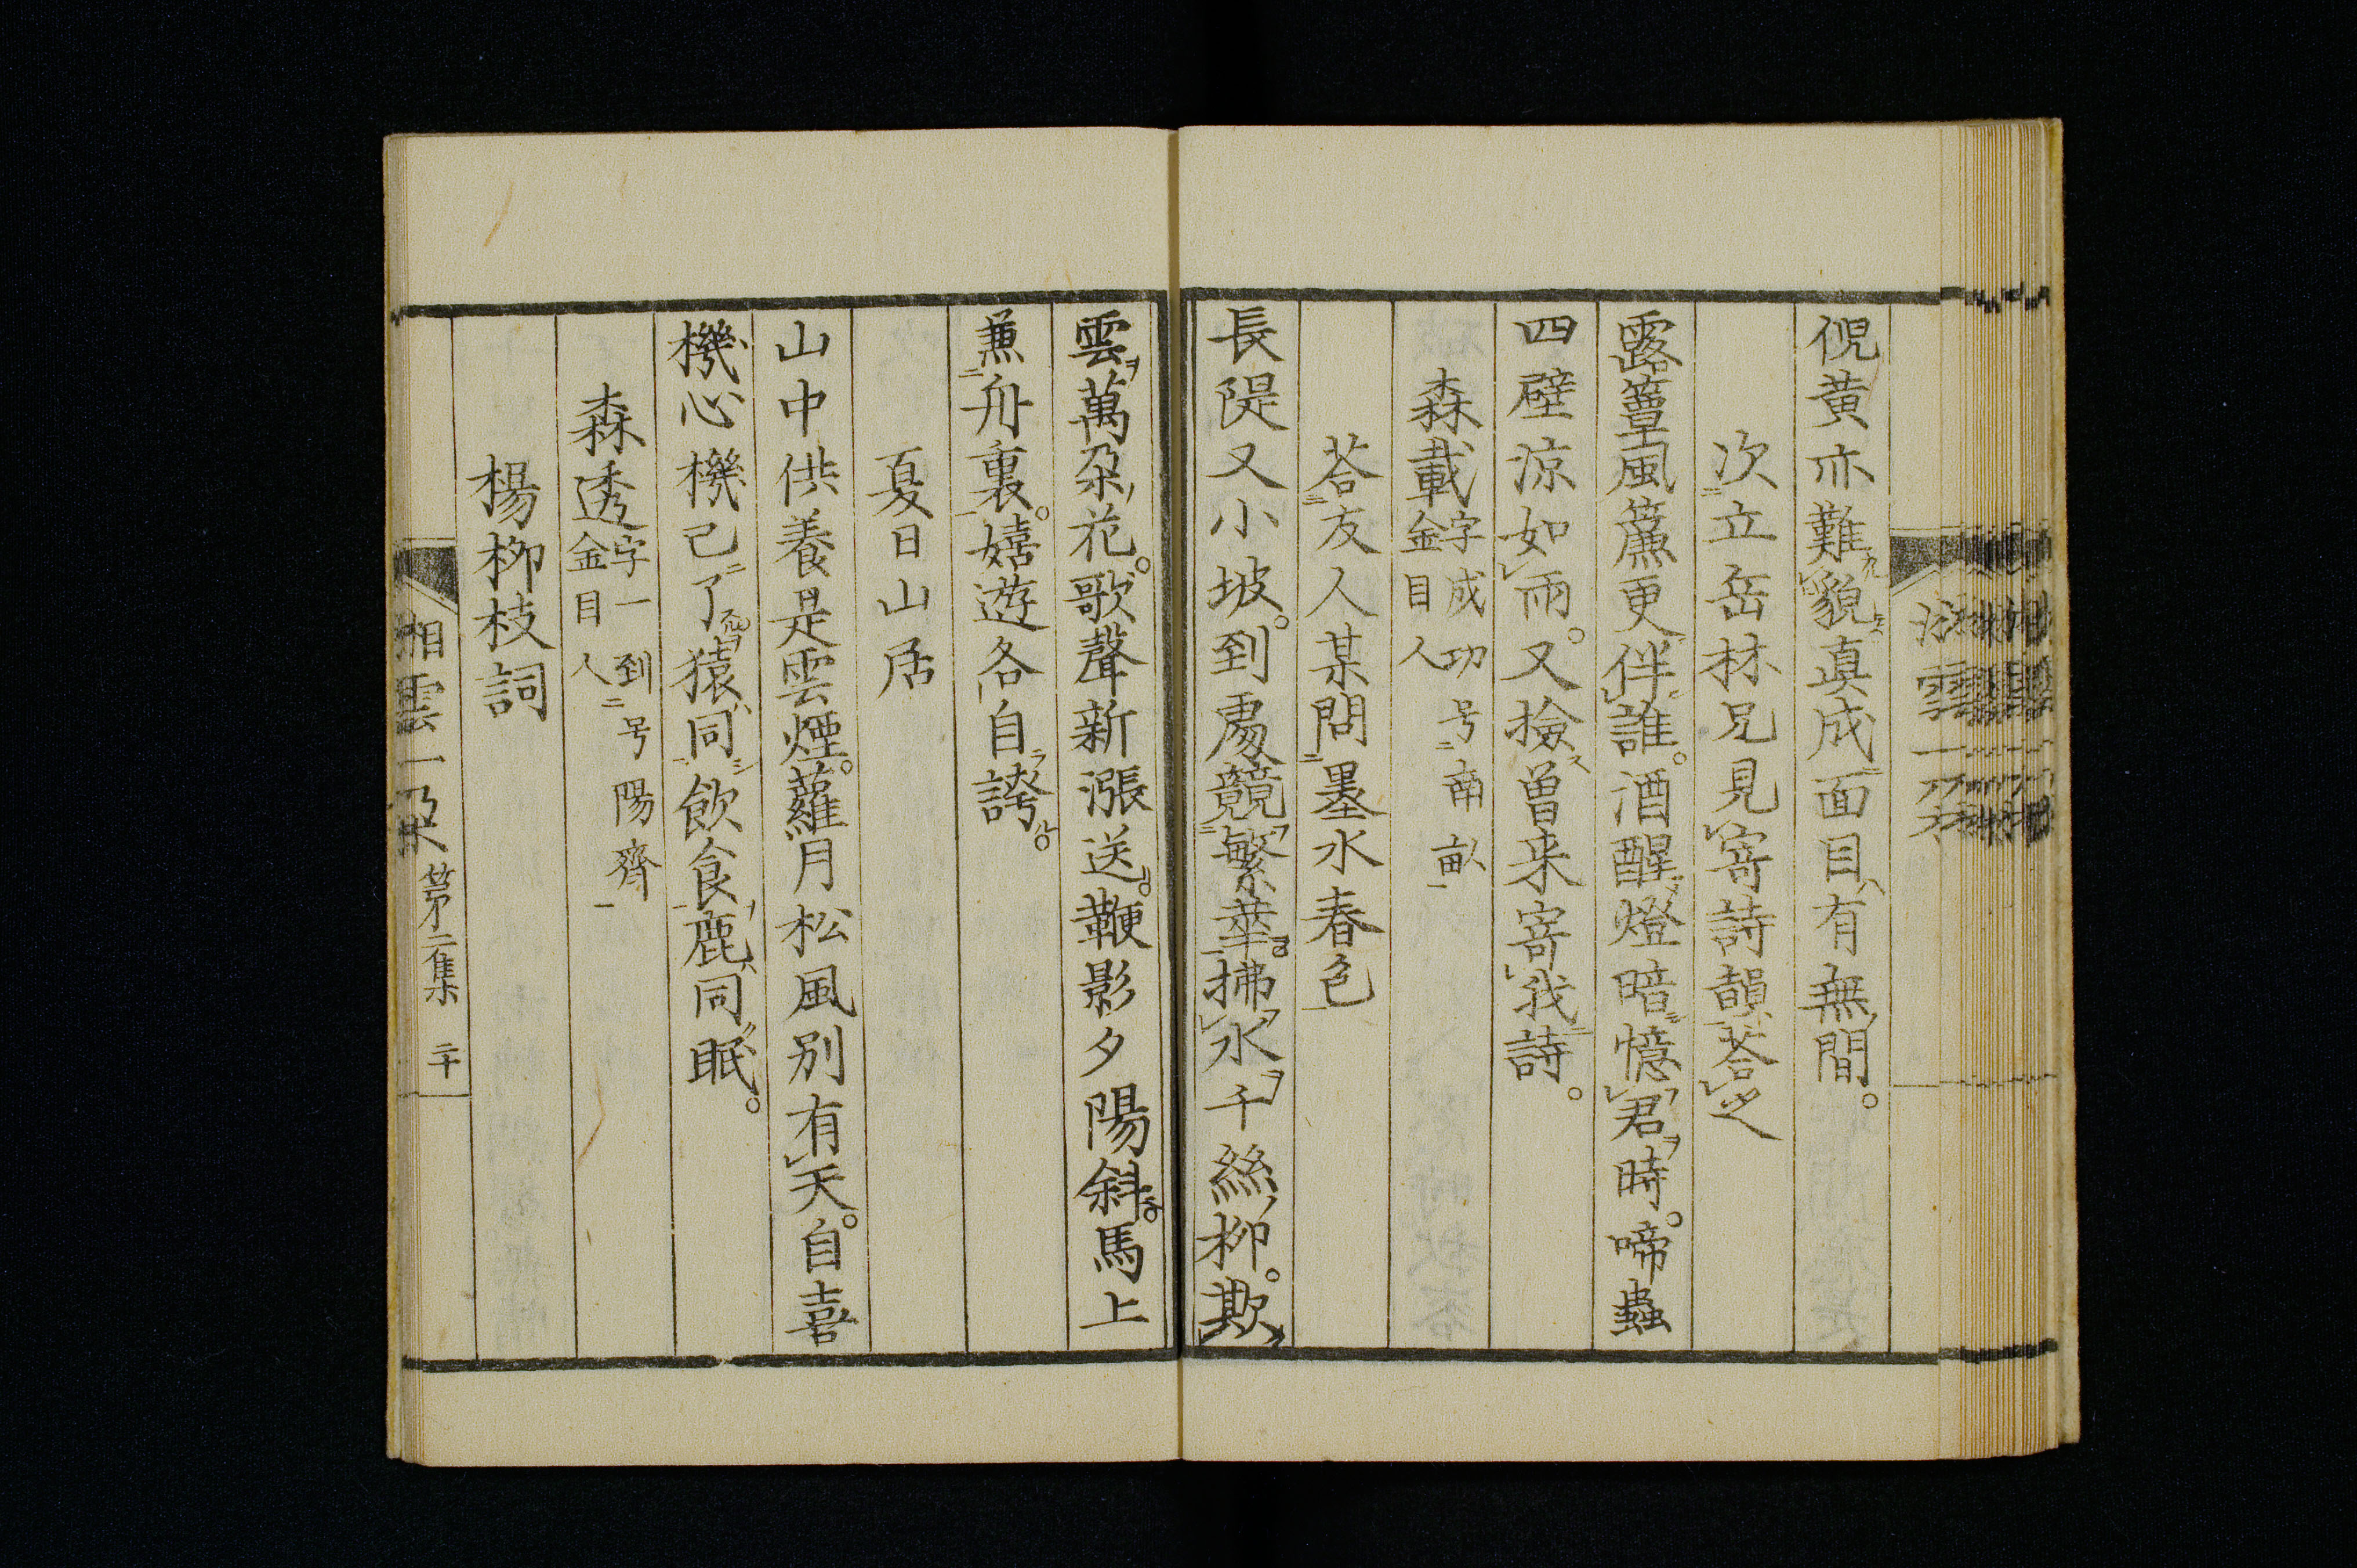 倪黄亦難貌真成面目有無間。
次立岳林兄見寄詩韻荅之
露簟風簾更伴誰。酒醒燈暗憶君時。啼蟲
四壁涼如雨。又撿曽来寄我詩。
森載字成功号南畝
金目人
荅友人某問墨水春色
長隄又小坡。到處競繁華。拂水千絲柳。欺
雲萬朶花。歌聲新漲送。鞭影夕陽斜。馬上
兼舟裏。嬉遊各自誇。
夏日山居
山中供養是雲煙。蘿月松風別有天。自喜
機心機已了猿同飲食鹿同眠。
森透字一到号陽齊
金目人
楊柳枝詞
相雲一朶 第二集 二十